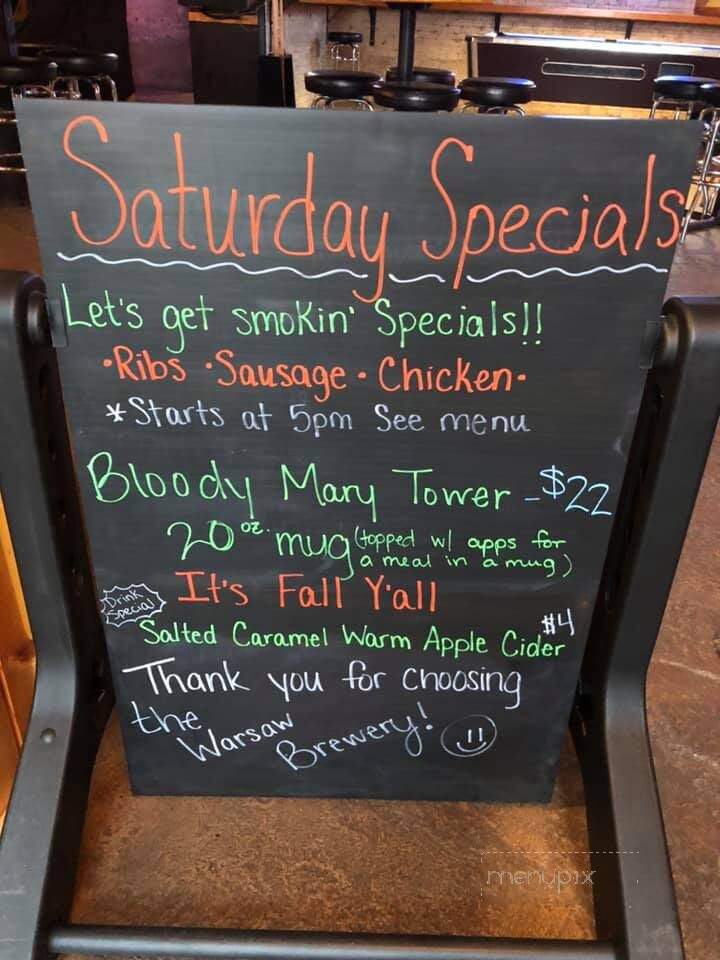 Saturday Specials
Let's get smokin' Specials!!
•Ribs •Sausage • Chicken•
*Starts at 5pm See menu
Bloody Mary Tower - $22
20 oz. mug (topped w/ apps for
a meal in a mug)
Drink Special
It's Fall Y'all
$4
Salted Caramel Warm Apple Cider
Thank you for choosing
the
Warsaw
Brewery!
menupix